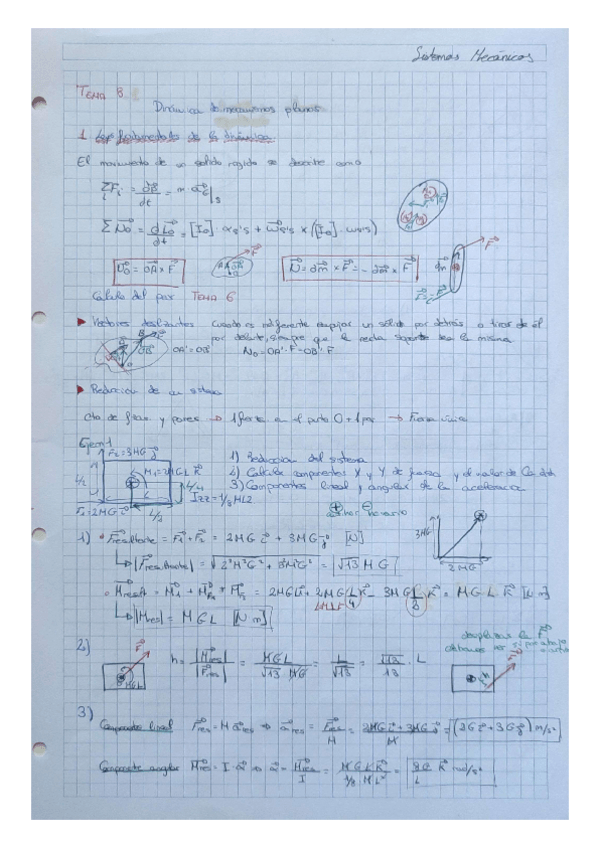 Sistemas Mecánicos
TEMA 8
Dinámica de mecanismos planos
1 Leyes fundamentales de la dinámica
El movimiento de un sólido rígido se describe como
Cálculo del par TEMA 6
▶ Vectores deslizantes Cuando es indiferente empujar un sólido por detrás o tirar de él
por delante, siempre que la recta soporte sea la misma
OA' = OB' N₀ = OA'·F = OB'·F
▶ Reducción de un sistema
Cto de fzas y pares → 1 fuerza en el punto O + 1 par → Fuerza única
Ejem 1
F₂ = 3MG j
M₁ = 2MGL k
F₁ = 2MG i
Izz = 1/8 ML²
1) Reducción del sistema
2) Calcular componentes X y Y de fuerza y el valor de la dist
3) Componentes lineal y angular de la aceleración
3MG
2MG
1) • F resultante = F₁ + F₂ = 2MG i + 3MG j [N]
|F resultante| = √(2²M²G² + 3²M²G²) = √13 MG
M result = M₁ + M F₁ + M F₂ = MGL k [N m]
|M res| = MGL [N m]
2)
F
MGL
h = |M res| / |F res| = MGL / √13 MG = L / √13 = √13 / 13 · L
3) Componente lineal F res = M a res ⇒ a res = F res / M = (2MG i + 3MG j) / M = (2G i + 3G j) m/s²
Componente angular M res = I · α ⇒ α = M res / I = MGL k / (1/8 ML²) = 8G / L k rad/s²